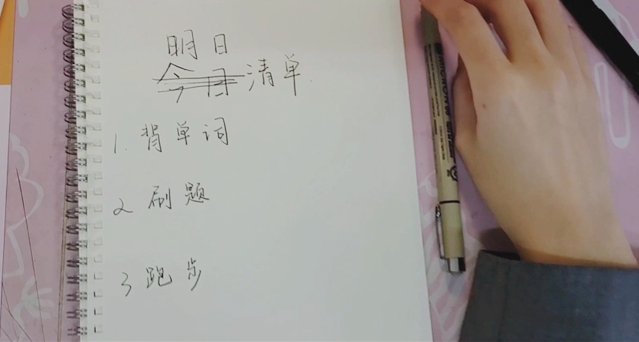 明日
今日清单
1. 背单词
2 刷题
3 跑步